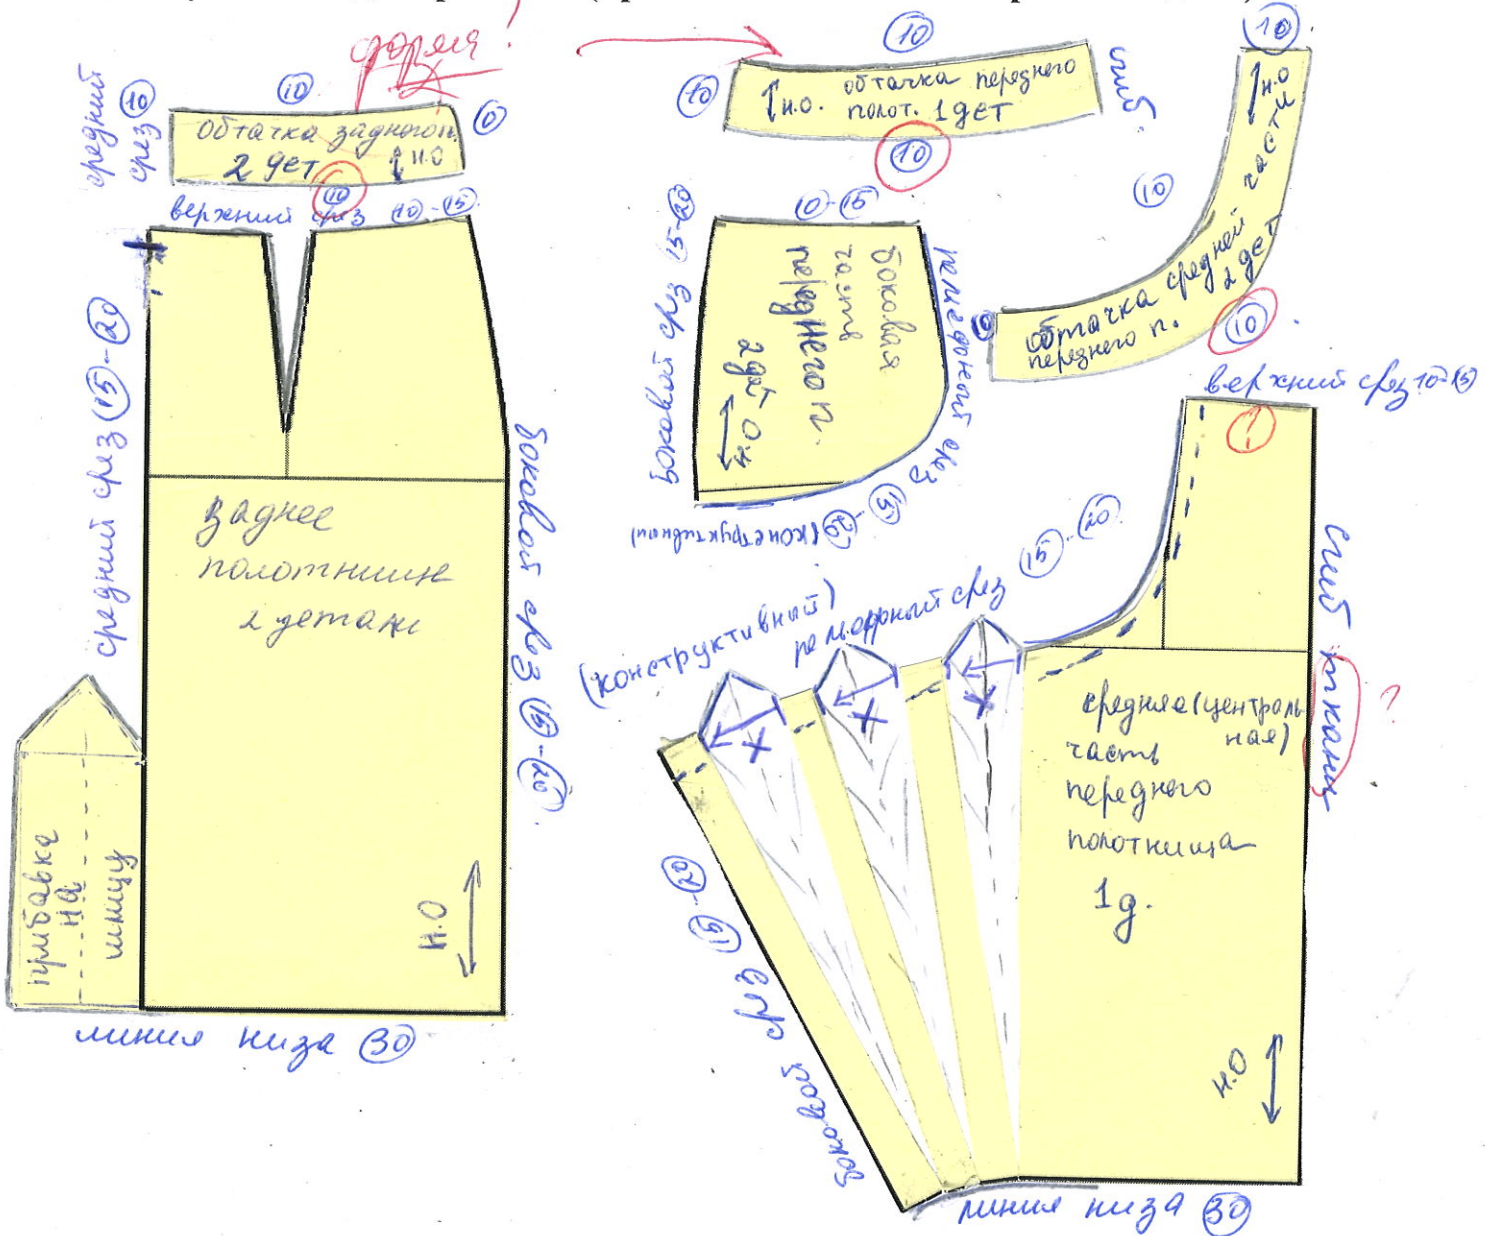 форма!
средний
срез 10
10
10
Обтачка заднего п.
2 дет
Н.О
10
верхний срез 10-15
средний срез 15-20
боковой срез 15-20.
заднее
полотнище
2 детали
прибавка
на
шлицу
Н.О
линия низа 30
10
10
сгиб.
Н.О. обтачка переднего
полот. 1 дет
10
10
Н.О
10
обтачка средней части
переднего п.
2 дет
10
10
10-15
боковой срез 15-20
боковая
часть
переднего п.
2 дет
Н.О
рельефный срез
15-20 (конструктивный)
верхний срез 10-15
?
(конструктивный)
рельефный срез
15-20
сгиб ткани
?
средняя (централь
ная)
часть
переднего
полотнища
1 д.
Н.О
боковой срез 15-20
линия низа 30